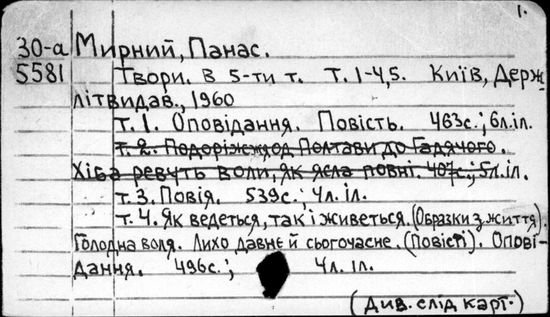 1.
30-а Мирний, Панас.
5581 Твори. В 5-ти т. Т. 1-4,5. Київ, Держ-
літвидав., 1960
т. 1. Оповідання. Повість. 463с.; 6л.іл.
т. 2. Подоріжжя од Полтави до Гадячого.
Хіба ревуть воли, як ясла повні. 407с.; 5л.іл.
т. 3. Повія. 539с.; 4л. іл.
т. 4. Як ведеться, так і живеться. (Образки з життя).
Голодна воля. Лихо давнє й сьогочасне. (Повісті). Опові-
дання. 496с.; 4л. іл.
(Див. слід карт.)